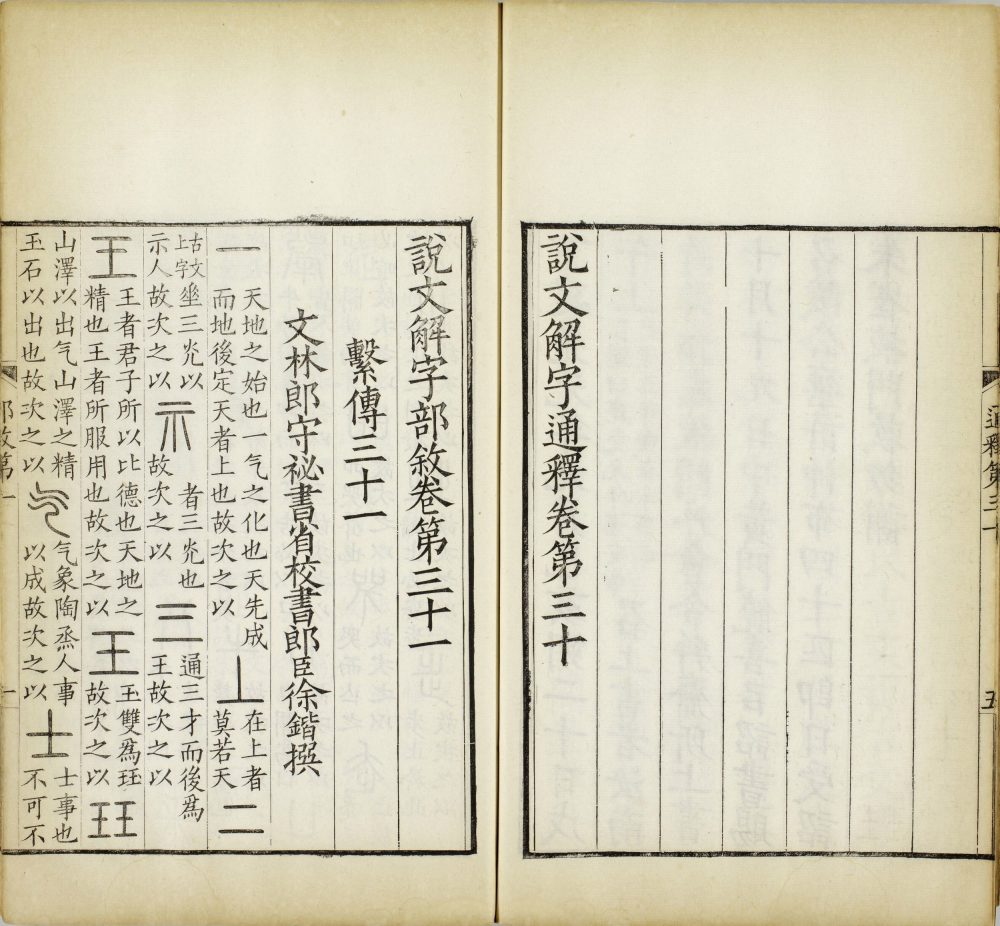 通釋第三十 五
說文解字通釋卷第三十
說文解字部敘卷第三十一
繫傳三十一
文林郎守祕書省校書郎臣徐鍇撰
一 天地之始也一气之化也天先成而地後定天者上也故次之以 丄 在上者莫若天 二
古文上字垂三灮以示人故次之以 示 者三灮也故次之以 三 通三才而後爲王故次之以
王 王者君子所以比德也天地之精也王者所服用也故次之以 王 玉雙爲玨故次之以 玨
山澤以出气山澤之精玉石以出也故次之以 气 气象陶烝人事以成故次之以 士 士事也不可不